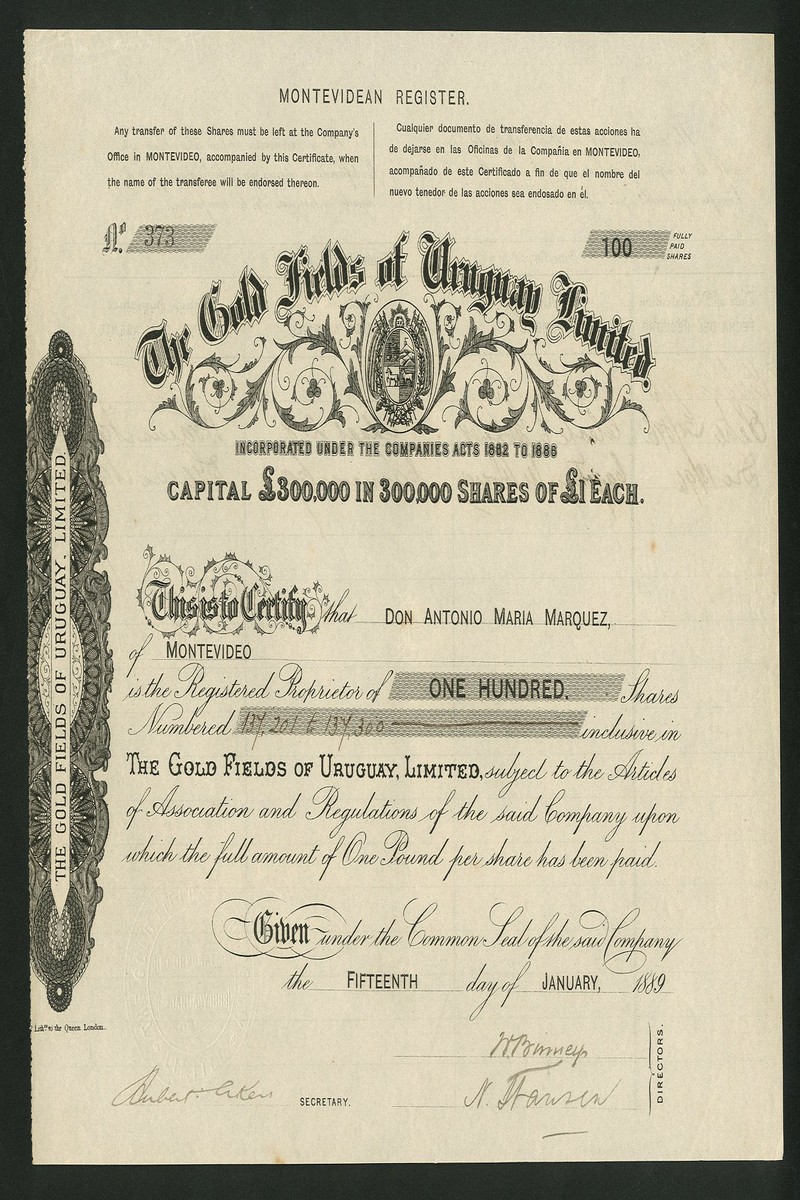 MONTEVIDEAN REGISTER.
Any transfer of these Shares must be left at the Company's
Office in MONTEVIDEO, accompanied by this Certificate, when
the name of the transferee will be endorsed thereon.
Cualquier documento de transferencia de estas acciones ha
de dejarse en las Oficinas de la Compañia en MONTEVIDEO,
acompañado de este Certificado a fin de que el nombre del
nuevo tenedor de las acciones sea endosado en él.
No. 373
100 FULLY PAID SHARES
The Gold Fields of Uruguay Limited.
INCORPORATED UNDER THE COMPANIES ACTS 1862 TO 1886
CAPITAL £300,000 IN 300,000 SHARES OF £1 EACH.
This is to Certify that DON ANTONIO MARIA MARQUEZ,
of MONTEVIDEO
is the Registered Proprietor of ONE HUNDRED. Shares
Numbered 137,201 to 137,300 inclusive in
THE GOLD FIELDS OF URUGUAY, LIMITED, subject to the Articles
of Association and Regulations of the said Company upon
which the full amount of One Pound per share has been paid.
Given under the Common Seal of the said Company
the FIFTEENTH day of JANUARY, 1889
W. Binney
N. Hansen
DIRECTORS.
Hubert Akers
SECRETARY.
THE GOLD FIELDS OF URUGUAY, LIMITED.
Lith.rs to the Queen London.